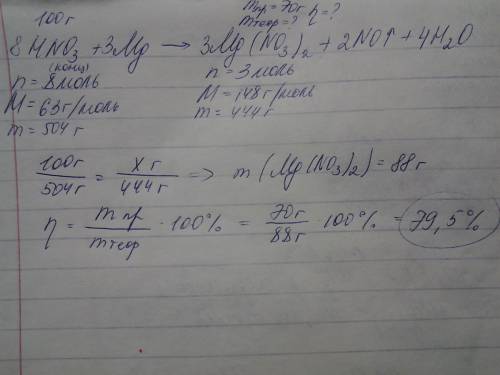 100г
mпр = 70г η = ?
mтеор = ?
8HNO₃ + 3Mg → 3Mg(NO₃)₂ + 2NO↑ + 4H₂O
(конц)
n = 8моль
M = 63г/моль
m = 504г
n = 3моль
M = 148г/моль
m = 444г
100г/504г = xг/444г => m(Mg(NO₃)₂) = 88г
η = mпр/mтеор · 100% = 70г/88г · 100% = 79,5%